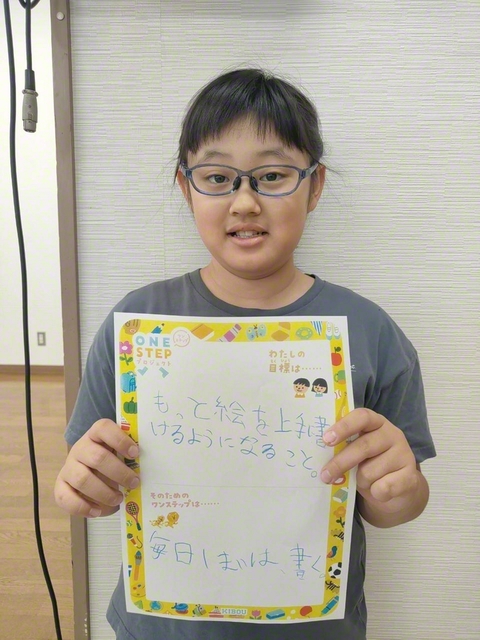 ONE
STEP
プロジェクト
わたしの
目標は……
もっと絵を上手書
けるようになること。
そのための
ワンステップは……
毎日1まいは、書く。
HIROU